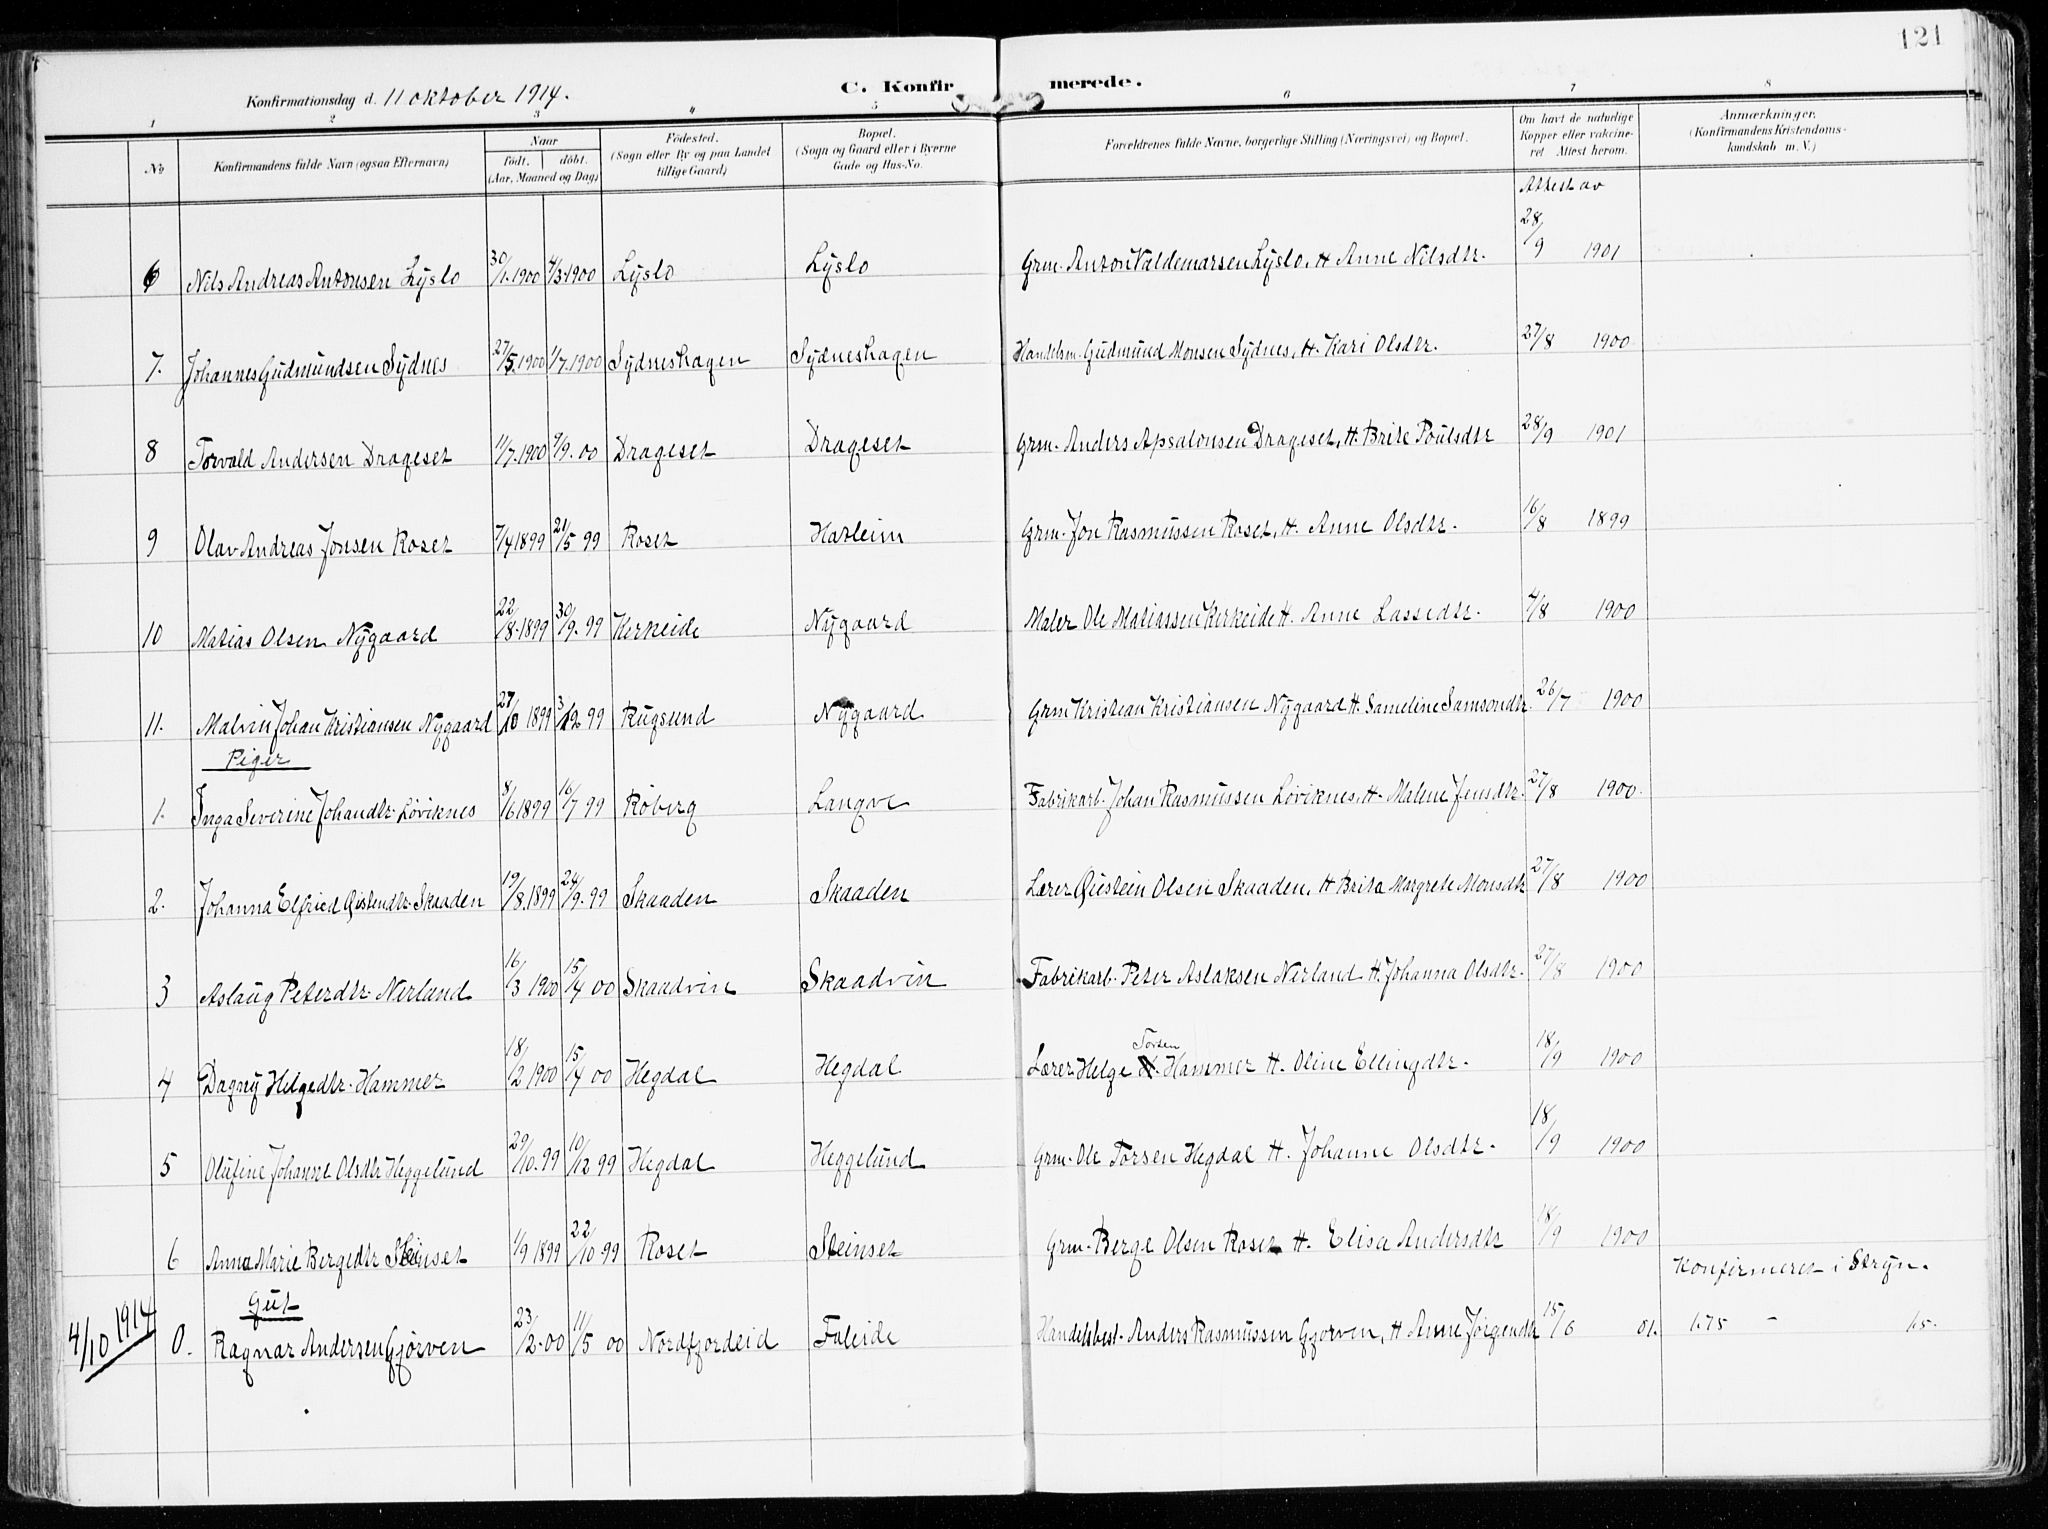 121
Konfirmationsdag d. 11 oktober 1914. C. Konfirmerede.
1 2 3 4 5 6 7 8
No Konfirmandens fulde Navn (ogsaa Efternavn) Naar födt. döbt. (Aar, Maaned og Dag) Födested. (Sogn eller By og paa Landet tillige Gaard) Bopæl. (Sogn og Gaard eller i Byerne Gade og Hus-No. Forældrenes fulde Navne, borgerlige Stilling (Næringsvei) og Bopæl. Om havt de naturlige Kopper eller vakcineret Attest herom. Anmærkninger. (Konfirmandens Kristendomskundskab m. V.)
Attest av
6 Nils Andreas Antonsen Lyslo 30/1.1900 4/3.1900 Lyslo Lyslo Grm. Anton Valdemarsen Lyslo, H Anne Nilsdtr. 28/9 1901
7. Johannes Gudmundsen Sydnes 27/5.1900 1/7.1900 Sydneshagen Sydneshagen Handelsm. Gudmund Monsen Sydnes, H. Kari Olsdtr. 27/8 1900
8 Torvald Andersen Drageset 11/7.1900 9/9.00 Drageset Drageset Grm. Anders Apsalonsen Drageset, H. Brite Poulsdtr 28/9 1901
9 Olav Andreas Jonsen Roset 7/4 1899 21/5 99 Roset Hatleim Grm. Jon Rasmussen Roset, H. Anne Olsdtr. 16/8 1899
10 Matias Olsen Nygaard 22/8.1899 30/9.99 Kerkeide Nygaard Maler Ole Matiassen Kerkeide H. Anne Lassedtr. 4/8 1900
11. Malvin Johan Kristiansen Nygaard 27/10 1899 3/12 99 Rugsund Nygaard Grm Kristian Kristiansen Nygaard H. Sameline Samsondtr. 26/7 1900
Piger
1. Inga Severine Johandtr. Löviknes 8/6 1899 16/7 99 Röberg Langve Fabrikarb. Johan Rasmussen Löviknes, H. Malene Jensdtr. 27/8 1900.
2. Johanna Elfried Öistendtr. Skaaden 19/8.1899 24/9.99 Skaaden Skaaden Lærer Öistein Olsen Skaaden, H Brita Margrete Monsdtr 27/8 1900
3 Aslaug Peterdtr. Nerland 16/3 1900 15/4 00 Skaadvin Skaadvin Fabrikarb. Peter Aslaksen Nerland H. Johanna Olsdtr. 27/8 1900
4 Dagny Helgedtr. Hammer 18/2 1900 15/4 00 Hegdal Hegdal Lærer Helge Torsen Hammer H. Oline Ellingdtr. 18/9 1900
5 Olufine Johanne Olsdtr Heggelund 29/10.99 10/12 99 Hegdal Heggelund Grm. Ole Torsen Hegdal H. Johanne Olsdtr. 18/9 1900
6 Anna Marie Bergedtr Steinset 1/9 1899 22/10 99 Roset Steinset Grm. Berge Olsen Roset H. Elisa Andersdtr 18/9 1900
Konfirmeret i Stryn.
Gut
4/10 1914 0. Ragnar Andersen Gjörven 23/2.00 11/5 00 Nordfjordeid Faleide Handelsbest. Anders Rasmussen Gjörven, H Anne Jörgendtr 15/6 01. 1.75 - 1.5.